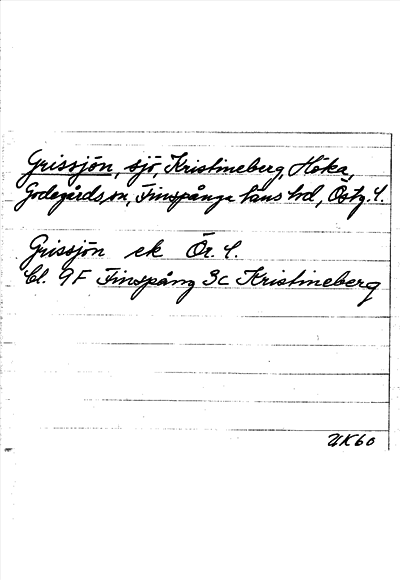 Grissjön, sjö, Kristineberg, Höka,
Godegårds sn, Finspånga läns hd, Östg. l.
Grissjön ek Ör. l.
Bl. 9F Finspång 3c Kristineberg
UK60